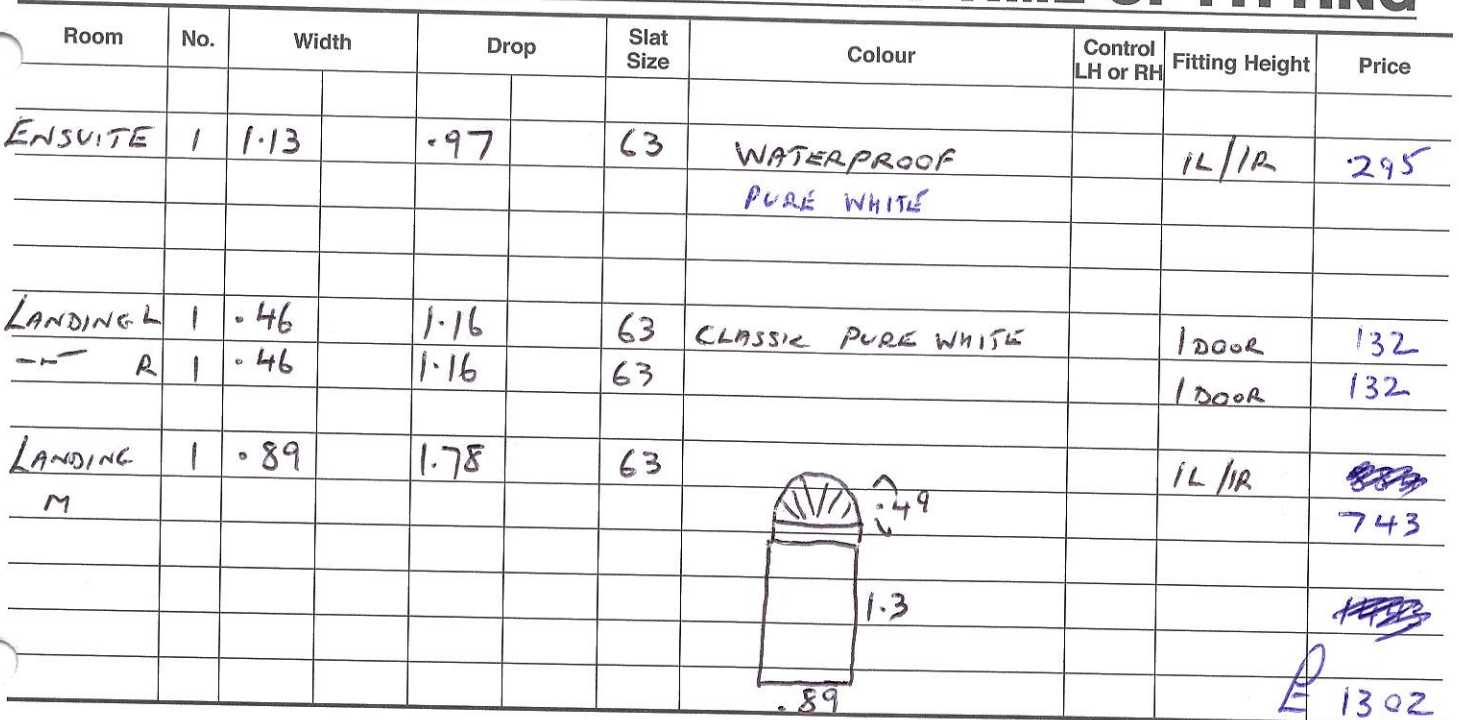 TIME OF FITTING
Room No. Width Drop Slat Size Colour Control LH or RH Fitting Height Price
ENSUITE 1 1.13 .97 63 WATERPROOF 1L/1R 295
PURE WHITE
LANDING L 1 .46 1.16 63 CLASSIC PURE WHITE 1 DOOR 132
R 1 .46 1.16 63 1 DOOR 132
LANDING 1 .89 1.78 63 1L/1R
M .49 743
1.3
.89 £ 1302